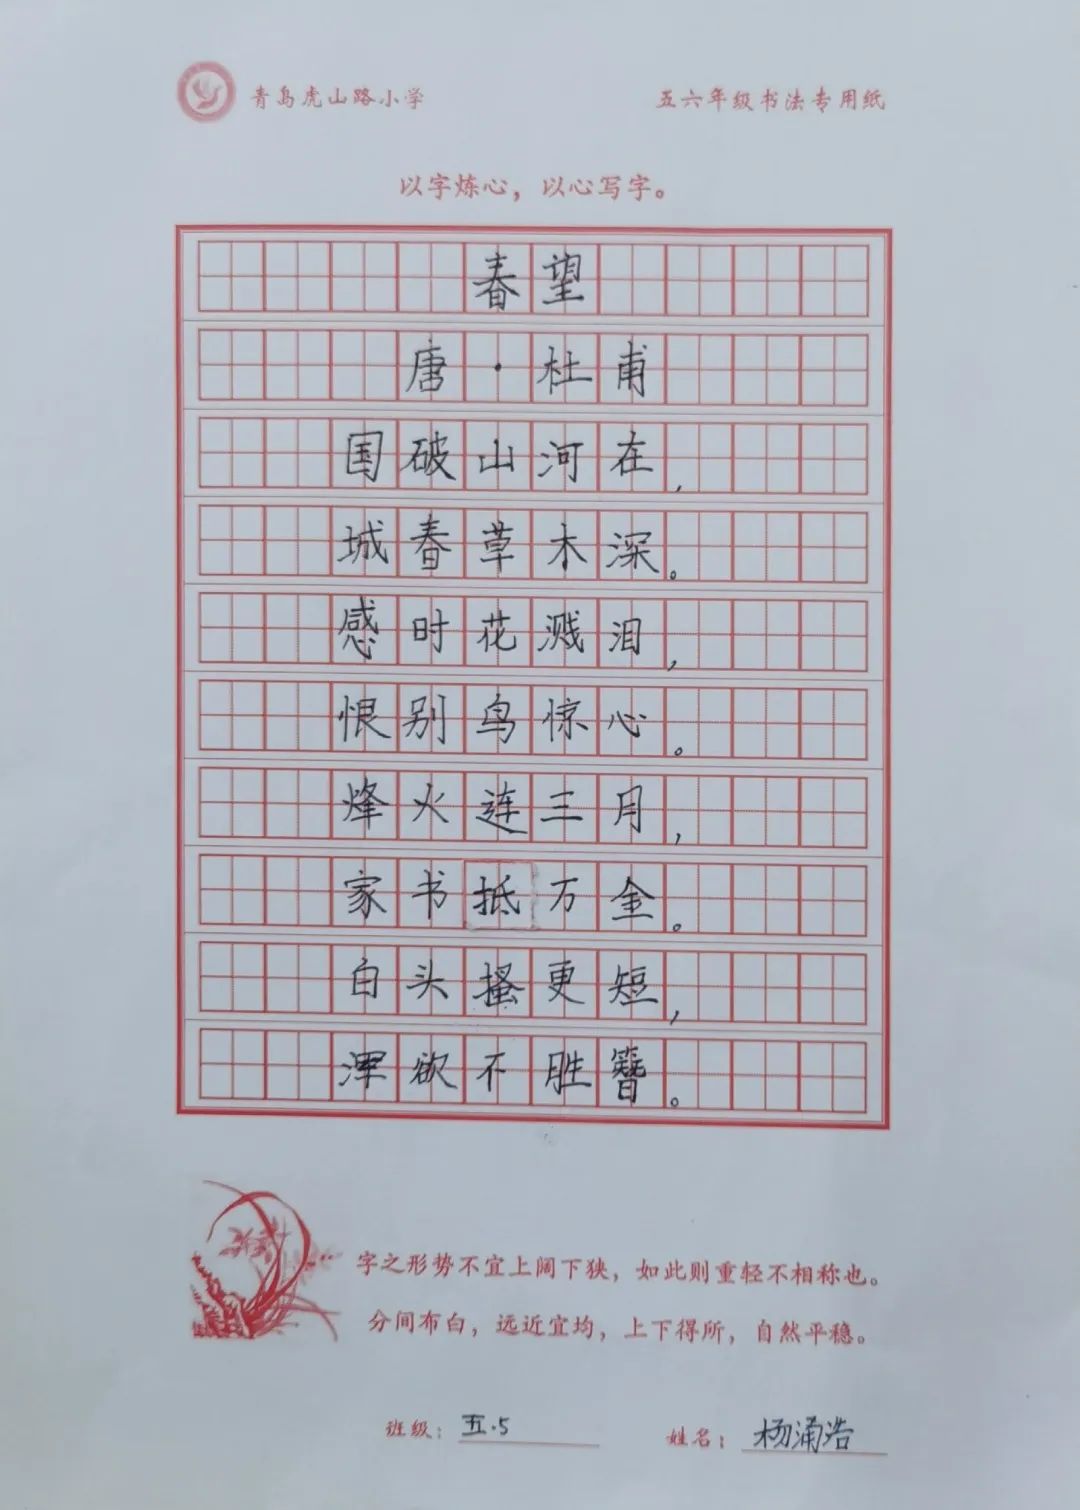 青岛虎山路小学
五六年级书法专用纸
以字炼心，以心写字。
春望
唐·杜甫
国破山河在，
城春草木深。
感时花溅泪，
恨别鸟惊心。
烽火连三月，
家书抵万金。
白头搔更短，
浑欲不胜簪。
字之形势不宜上阔下狭，如此则重轻不相称也。
分间布白，远近宜均，上下得所，自然平稳。
班级：五.5
姓名：杨涌浩